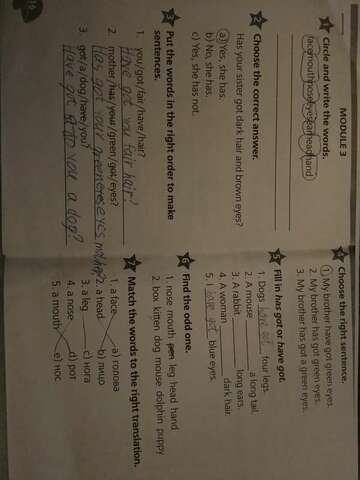 MODULE 3
1 Circle and write the words.
facemouthnoseeyesearheadhand
2 Choose the correct answer.
Has your sister got dark hair and brown eyes?
a) Yes, she has.
b) No, she has.
c) Yes, she has not.
3 Put the words in the right order to make
sentences.
1. you/got/fair/have/hair?
Have got you fair hair?
2. mother/has/your/green/got/eyes?
Has got your green eyes mother?
3. got/a/dog/have/you?
Have got you a dog?
4 Choose the right sentence.
1) My brother have got green eyes.
2. My brother has got green eyes.
3. My brother has got a green eyes.
5 Fill in has got or have got.
1. Dogs have got four legs.
2. A mouse a long tail.
3. A rabbit long ears.
4. A woman dark hair.
5. I have got blue eyes.
6 Find the odd one.
1. nose mouth pen leg head hand
2. box kitten dog mouse dolphin puppy
7 Match the words to the right translation.
1. a face a) голова
2. a head b) лицо
3. a leg c) нога
4. a nose d) рот
5. a mouth e) нос